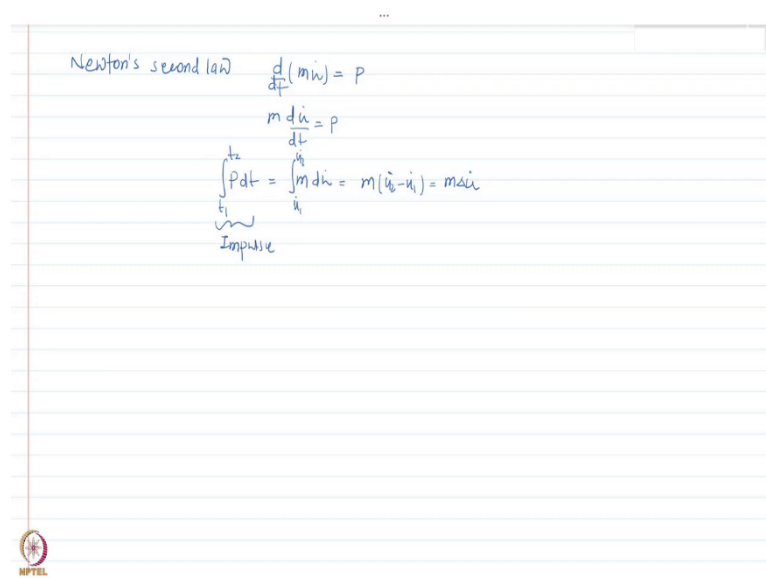 ...
Newton's second law d/dt (mu̇) = P
m du̇/dt = P
∫_{t₁}^{t₂} Pdt = ∫_{u̇₁}^{u̇₂} m du̇ = m(u̇₂-u̇₁) = mΔu̇
Impulse
NPTEL